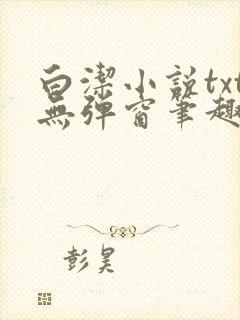 白潔小説txt
無彈窗筆趣
彭昊